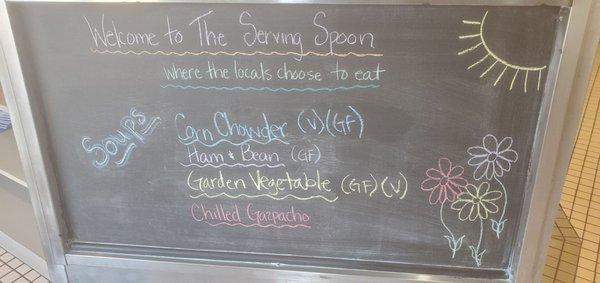 Welcome to The Serving Spoon
Where the locals choose to eat
Soups
Corn Chowder (V)(GF)
Ham & Bean (GF)
Garden Vegetable (GF)(V)
Chilled Gazpacho